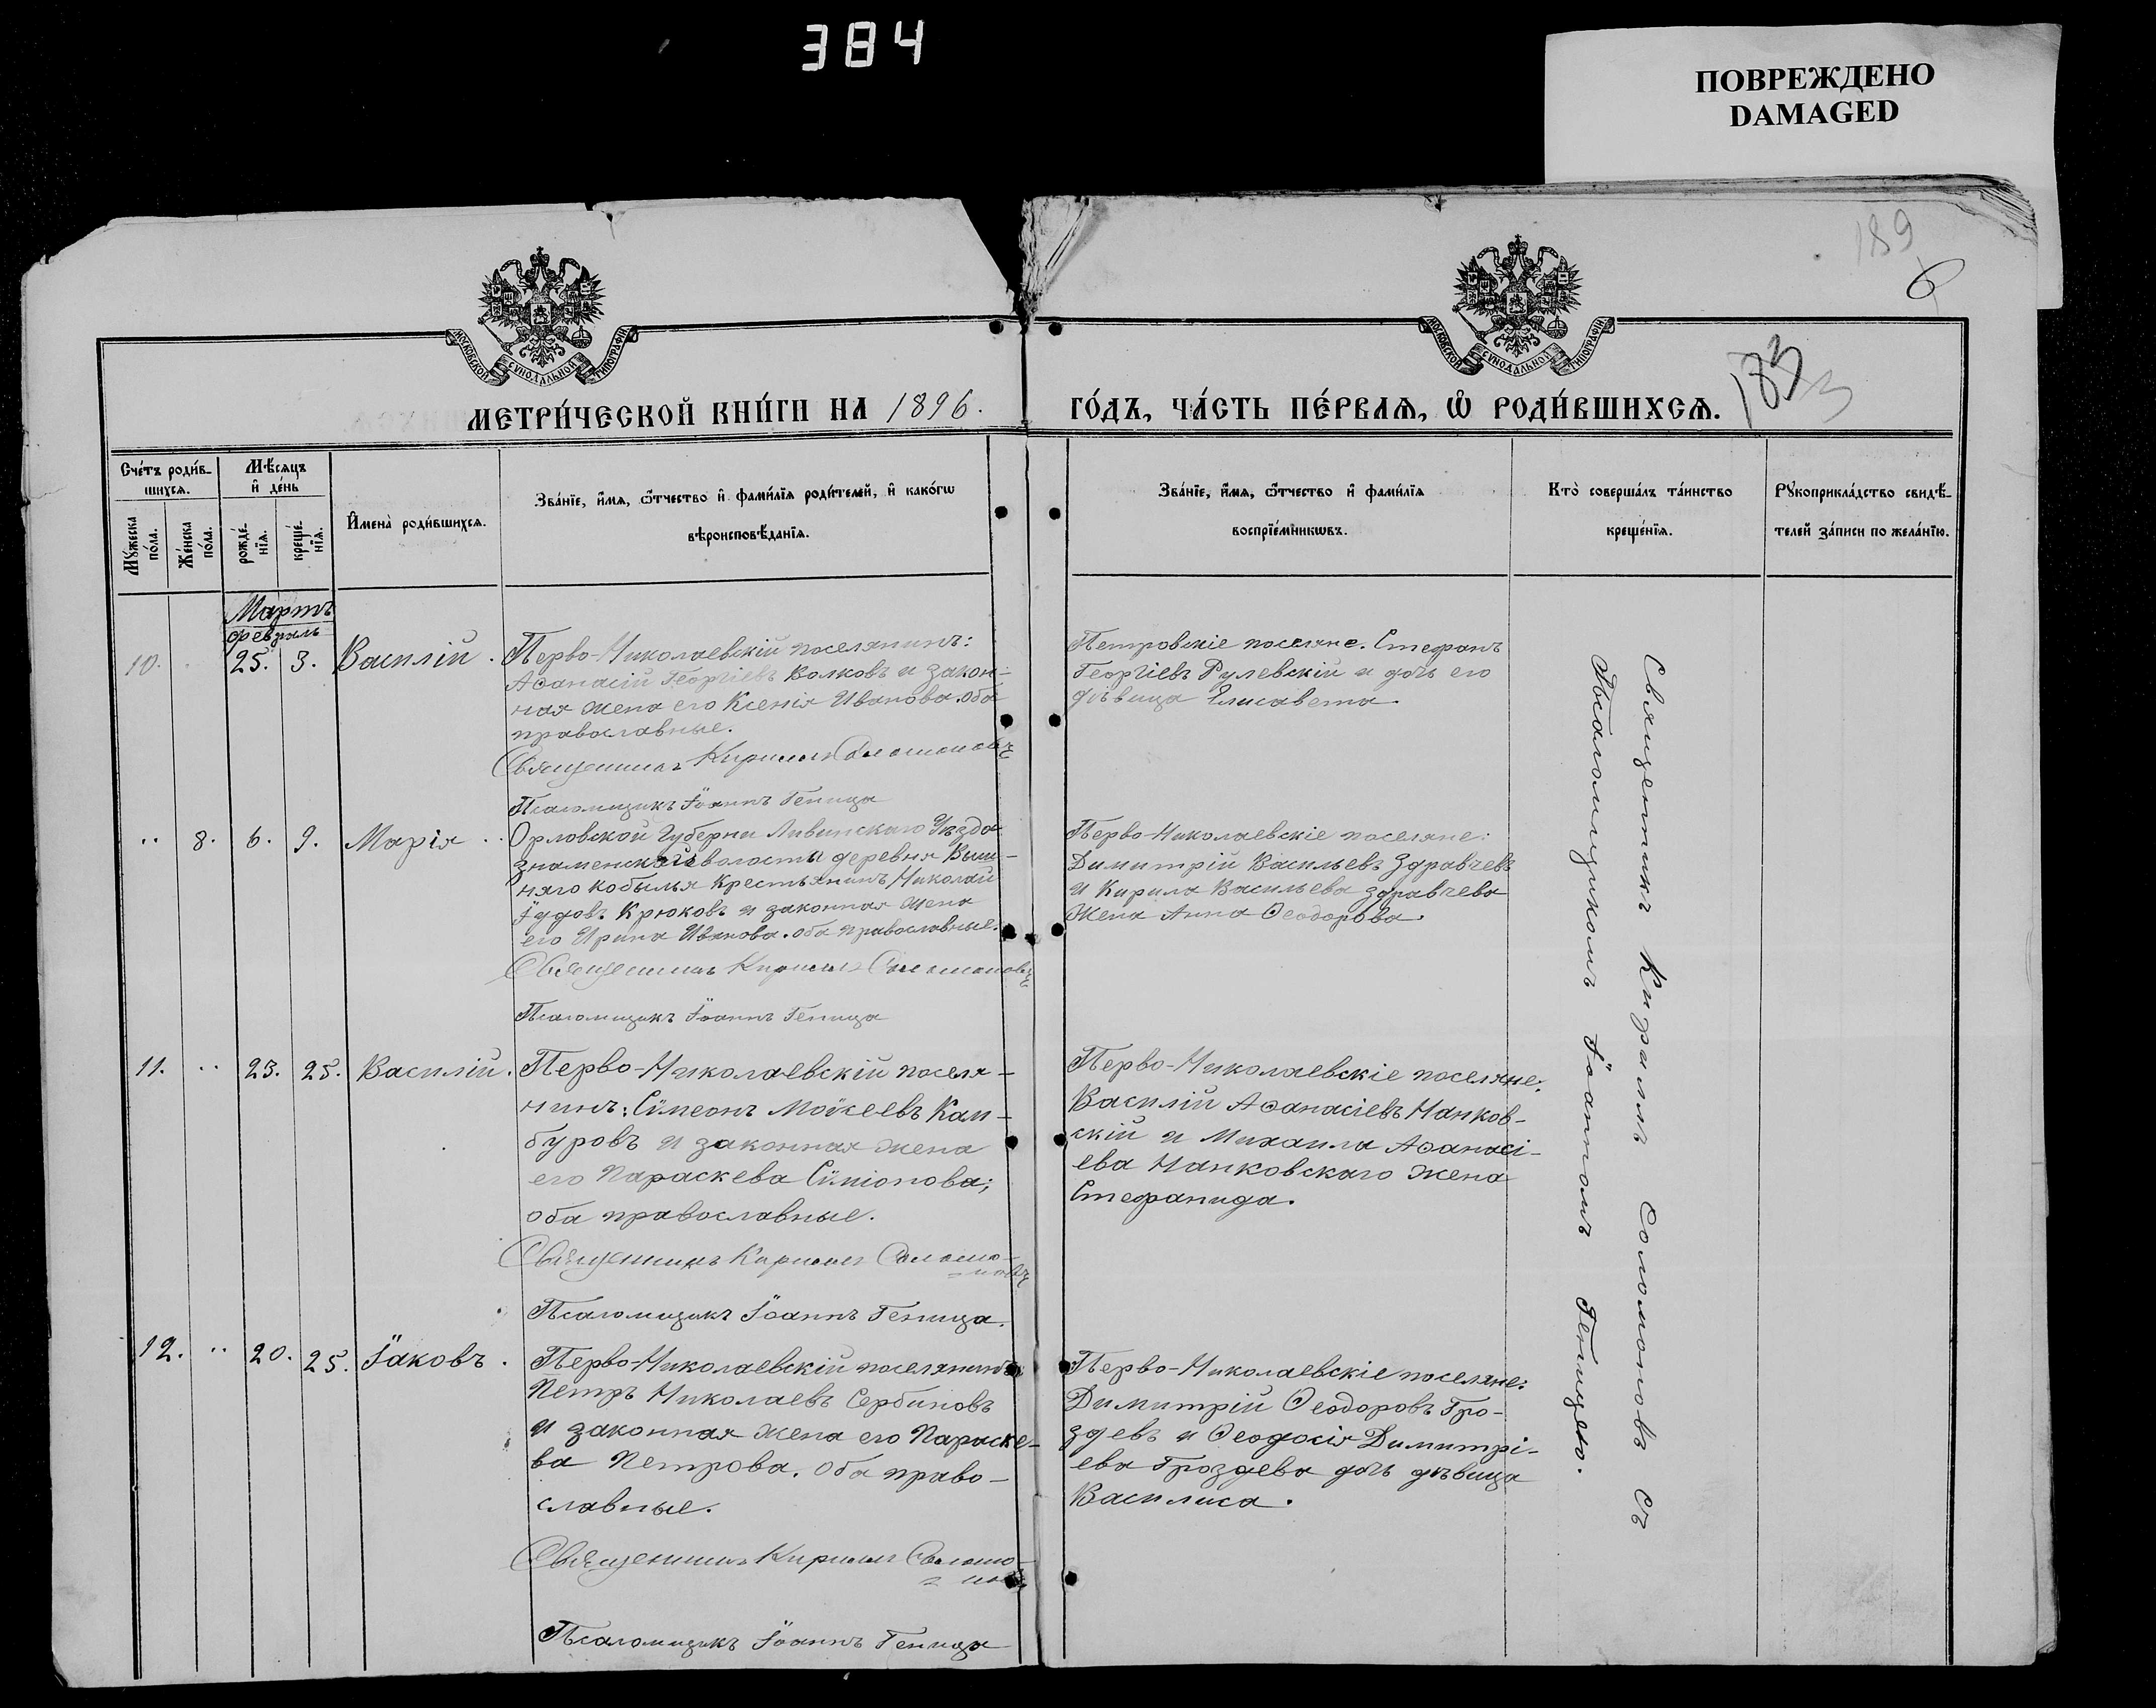 384
ПОВРЕЖДЕНО
DAMAGED
189
6
183
3
МОСКОВСКОЙ СѴНОДАЛЬНОЙ ТИПОГРАФІИ
МОСКОВСКОЙ СѴНОДАЛЬНОЙ ТИПОГРАФІИ
МЕТРИ́ЧЕСКОЙ КНИ́ГИ НА 1896.
ГО́ДЪ, ЧА́СТЬ ПЕ́РВАѦ, Ѡ҆ РОДИ́ВШИХСѦ.
Сче́тъ роди́в-
шихсѧ.
Мꙋ́жеска
по́ла.
Же́нска
по́ла.
Мѣ́сѧцъ
и҆ де́нь
рожде́-
нїѧ.
креще́-
нїѧ.
И҆мена̀ роди́вшихсѧ.
Зва́нїе, и҆́мѧ, ѻ҆́тчество и҆ фами́лїѧ роди́телей, и҆ како́гѡ
вѣроисповѣ́данїѧ.
Зва́нїе, и҆́мѧ, ѻ҆́тчество и҆ фами́лїѧ
воспрїе́мникѡвъ.
Кто̀ соверша́лъ та́инство
креще́нїѧ.
Рꙋкоприкла́дство свидѣ́-
телей за́писи по жела́нїю.
Мартъ
февраль
10. 25. 3. Василій.
Перво-Николаевскій поселянинъ:
Аѳанасій Георгіевъ Волковъ и закон-
ная жена его Ксенія Иванова. оба
православные.
Священникъ Кириллъ Соломоновъ
Псаломщикъ Іоаннъ Геница
Петровскіе поселяне. Стефанъ
Георгіевъ Рулевскій и дочь его
дѣвица Елисавета.
.. 8. 6. 9. Марія ..
Орловской Губерни Ливинскаго Уѣзда
Знаменской волости деревня Выш-
няго кобылья Крестьянинъ Николай
Іудовъ Крюковъ и законная жена
его Ирина Иванова. оба православные.
Священникъ Кириллъ Соломоновъ
Псаломщикъ Іоаннъ Геница
Перво-Николаевскіе поселяне:
Димитрій Васильевъ Здравчевъ
и Кирила Васильева Здравчева
жена Анна Ѳеодорова.
11. .. 23. 25. Василій.
Перво-Николаевскій поселя-
нинъ: Сѵмеонъ Моѵсеевъ Кам-
буровъ и законная жена
его Параскева Сѵміонова;
оба православные.
Священникъ Кириллъ Соломо-
новъ
Псаломщикъ Іоаннъ Геница.
Перво-Николаевскіе поселяне:
Василій Аѳанасіевъ Нанков-
скій и Михаила Аѳанасі-
ева Нанковскаго жена
Стефанида.
12. .. 20. 25. Іаковъ.
Перво-Николаевскій поселянинъ
Петръ Николаевъ Сербиновъ
и законная жена его Параске-
ва Петрова. Оба право-
славные.
Священникъ Кириллъ Соломо-
новъ
Псаломщикъ Іоаннъ Геница
Перво-Николаевскіе поселяне:
Димитрій Ѳеодоровъ Гро-
здевъ и Ѳеодосія Димитрі-
ева Гроздева дочь дѣвица
Василиса.
Священникъ Кириллъ Соломоновъ съ
Псаломщикомъ Іоанномъ Геницею.